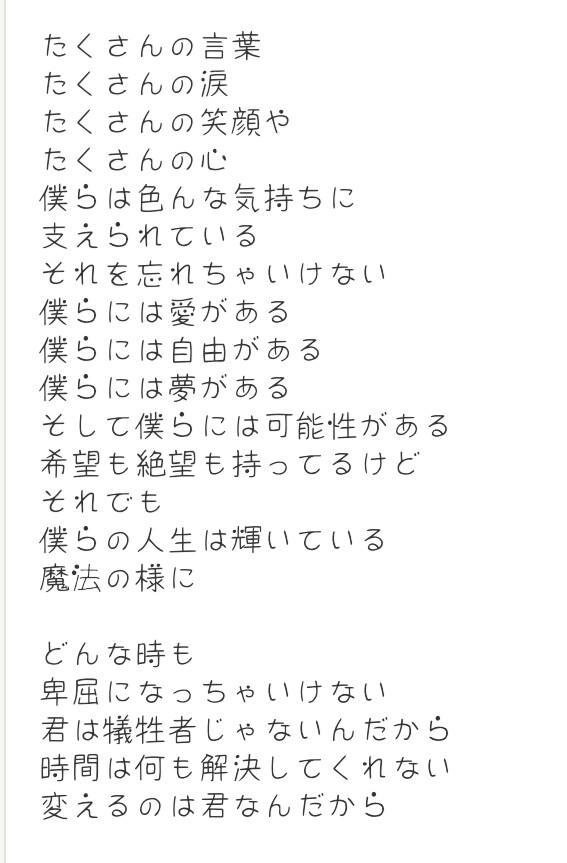 たくさんの言葉
たくさんの涙
たくさんの笑顔や
たくさんの心
僕らは色んな気持ちに
支えられている
それを忘れちゃいけない
僕らには愛がある
僕らには自由がある
僕らには夢がある
そして僕らには可能性がある
希望も絶望も持ってるけど
それでも
僕らの人生は輝いている
魔法の様に

どんな時も
卑屈になっちゃいけない
君は犠牲者じゃないんだから
時間は何も解決してくれない
変えるのは君なんだから